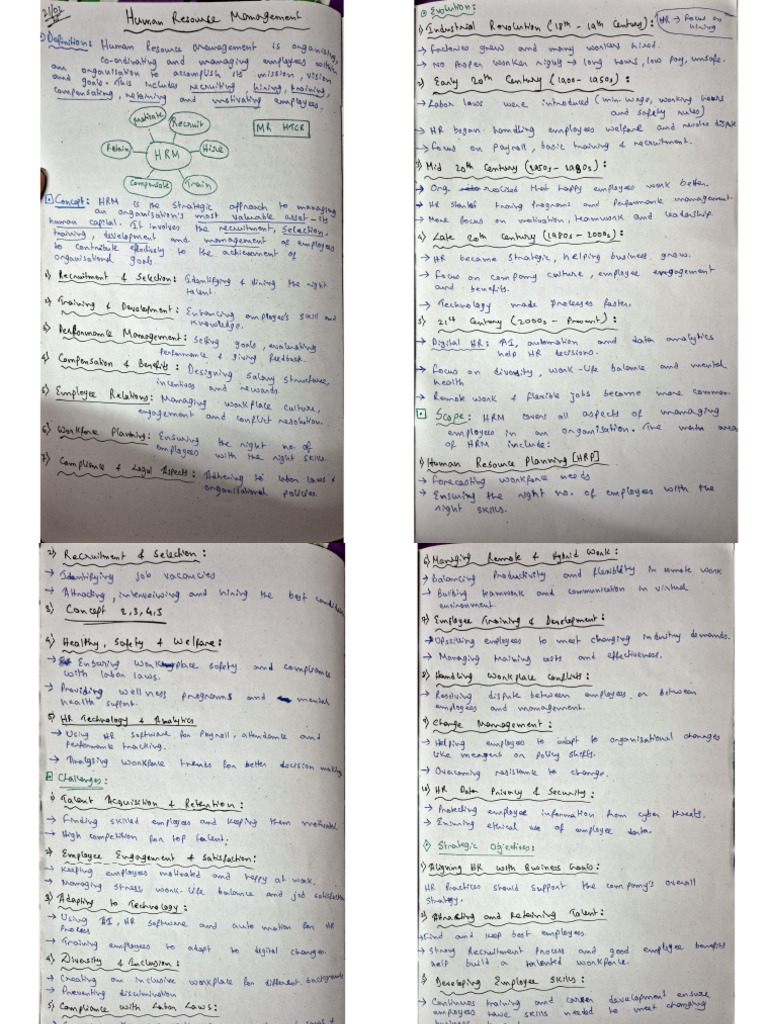 21/02
Human Resource Management
Definition: Human Resource Management is organising,
co-ordinating and managing employees within
an organisation to accomplish its mission, vision
and goals. This includes recruiting, hiring, training,
compensating, retaining and motivating employees.
Motivate
Recruit
MR HTCR
Retain
HRM
Hire
Compensate
Train
Concept: HRM is the strategic approach to managing
an organisation's most valuable asset - its
human capital. It involves the recruitment, selection,
training, development and management of employees
to contribute effectively to the achievement of
organisational goals.
1) Recruitment & Selection: Identifying & hiring the right
talent.
2) Training & Development: Enhancing employee's skill and
knowledge.
3) Performance Management: Setting goals, evaluating
performance & giving feedback.
4) Compensation & Benefits: Designing salary structure,
incentives and rewards.
5) Employee Relations: Managing workplace culture,
engagement and conflict resolution.
6) Workforce Planning: Ensuring the right no. of
employees with the right skills.
7) Compliance & Legal Aspects: Adhering to labor laws &
organisational policies.
Evolution:
1) Industrial Revolution (18th - 19th Century):
HR → Focus on
hiring
→ Factories grew and many workers hired.
→ No proper worker rights → long hours, low pay, unsafe.
2) Early 20th Century (1900 - 1950s):
→ Labor laws were introduced (min. wage, working hours
and safety rules)
→ HR began handling employees welfare and resolve dispute
→ Focus on Payroll, basic training & recruitment.
3) Mid 20th Century (1950s - 1980s):
→ Org. realised that happy employees work better.
→ HR started traing programs and Performance management.
→ More focus on motivation, teamwork and leadership.
4) Late 20th Century (1980s - 2000s):
→ HR became strategic, helping business grow.
→ Focus on company culture, employee engagement
and benefits.
→ Technology made processes faster.
5) 21st Century (2000s - Present):
→ Digital HR: AI, automation and data analytics
help HR decisions.
→ Focus on diversity, work-life balance and mental
health
→ Remote work & flexible jobs became more common.
Scope: HRM covers all aspects of managing
employees in an organisation. The main area
of HRM include:
1) Human Resource Planning [HRP]
→ Forecasting workforce needs
→ Ensuring the right no. of employees with the
right skills.
2) Recruitment & Selection:
→ Identifying job vacancies
→ Attracting, interviewing and hiring the best
3) Concept 2,3,4,5
4) Healthy, Safety & Welfare:
→ Ensuring workplace safety and compliance
with labor laws.
→ Providing wellness programs and mental
health support.
5) HR Technology & Analytics
→ Using HR software for Payroll, attendance and
Performance tracking.
→ Analysing workforce trends for better decision making
Challenges:
1) Talent Acquisition & Retention:
→ Finding skilled employees and keeping them motivated
→ High competition for top talent.
2) Employee Engagement & Satisfaction:
→ Keeping employees motivated and happy at work.
→ Managing stress work-life balance and job satisfaction
3) Adapting to Technology:
→ Using AI, HR software and automation for HR
Process
→ Training employees to adapt to digital changes
4) Diversity & Inclusion:
→ Creating an inclusive workplace for different backgrounds
→ Preventing discrimination
5) Compliance with Labor Laws:
6) Managing Remote & Hybrid Work:
→ Balancing Productivity and flexibility in remote work
→ Building teamwork and communication in virtual
environment.
7) Employee Training & Development:
→ Upskilling employees to meet changing industry demands.
→ Managing training costs and effectiveness.
8) Handling Workplace Conflicts:
→ Resolving dispute between employees or between
employees and management.
9) Change Management:
→ Helping employees to adapt to organisational changes
like mergers or policy shifts.
→ Overcoming resistance to change.
10) HR Data Privacy & Security:
→ Protecting employee information from cyber threats.
→ Ensuring ethical use of employee data.
Strategic Objectives:
1) Aligning HR with Business Goals:
HR Practices should support the company's overall
strategy.
2) Attracting and Retaining Talent:
→ Find and keep best employees.
→ Strong Recruitment Process and good employee benefits
help build a talented workforce.
3) Developing Employee Skills:
→ Continues training and career development ensure
employees have skills needed to meet changing